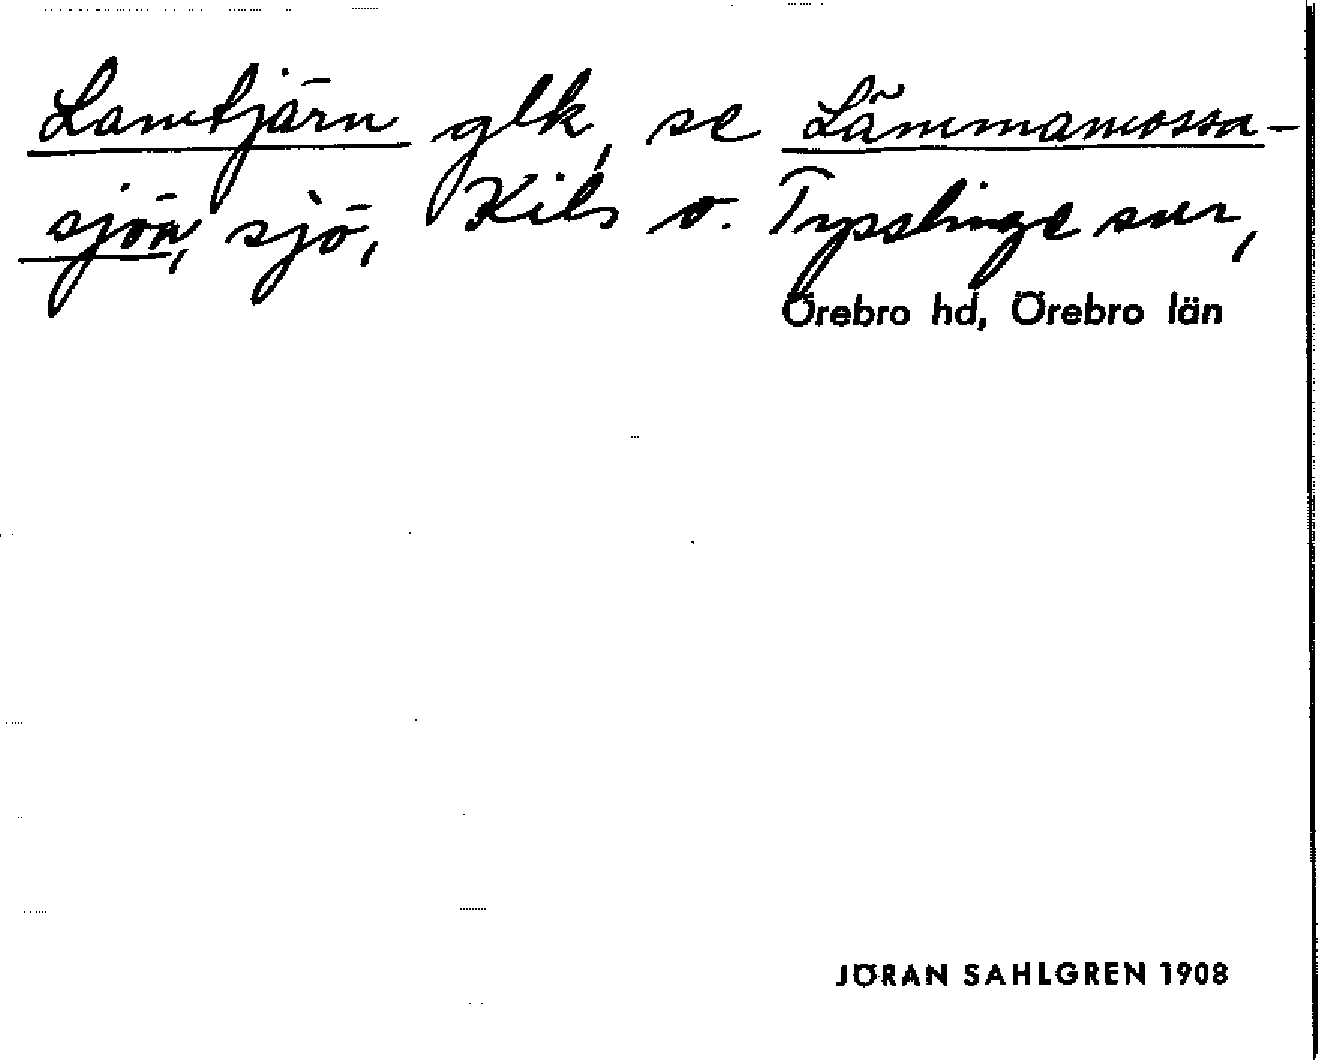 Lamtjärn glk, se Lämmamossa-
sjön, sjö, Kils o. Tysslinge snr,
Örebro hd, Örebro län
JÖRAN SAHLGREN 1908